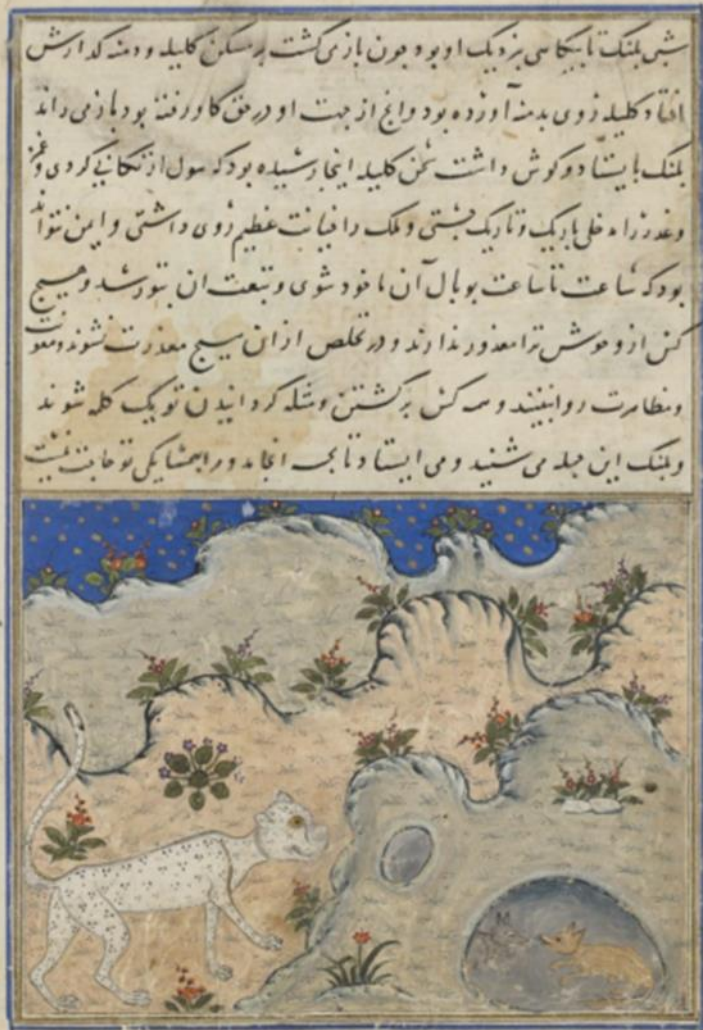 شبی پلنک تا بیکاهی بنزدیک او بود چون بازمی کشت بر مسکن کلیله و دمنه کدارش
افتاد کلیله روی بدمنه آورده بود و انچ از جهت او در حق کاو رفته بود بازمی راند
پلنک بایستاد و کوش داشت سخن کلیله اینجا رسیده بود که هول ارتکابی کردی و
و غدر را مدخلی باریک و تاریک جستی و ملک را خیانت عظیم روی داشتی و ایمن نتواند
بود که ساعت تا ساعت بوبال آن ماخوذ شوی و تبعت ان بتو رسد و هیچ
کس از وحوش ترا معذور ندارند و در تخلص از ان هیچ معذرت نشنوند و معونت
و مظاهرت روا نبینند و همه کس بر کشتن و مثله کردانیدن تو یک کلمه شوند
و پلنک این جمله می شنید و می ایستاد تا بجه انجامد و مرا بهمسایکی تو حاجت نیست